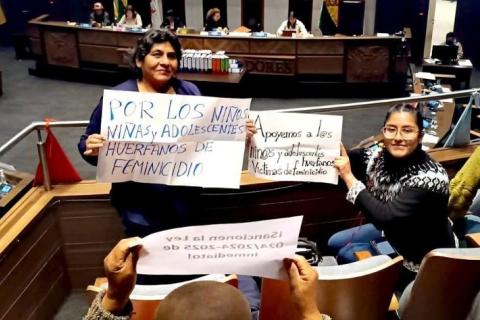 DORES
POR LOS NIÑOS,
NIÑAS y ADOLESCENTES
HUERFANOS DE
FEMINICIDIO
Apoyemos a l@s
niñas y adolescentes
huerfanos
Victimas de feminicidio
¡Sancionen la Ley
024/2024-2025 de
inmediato!